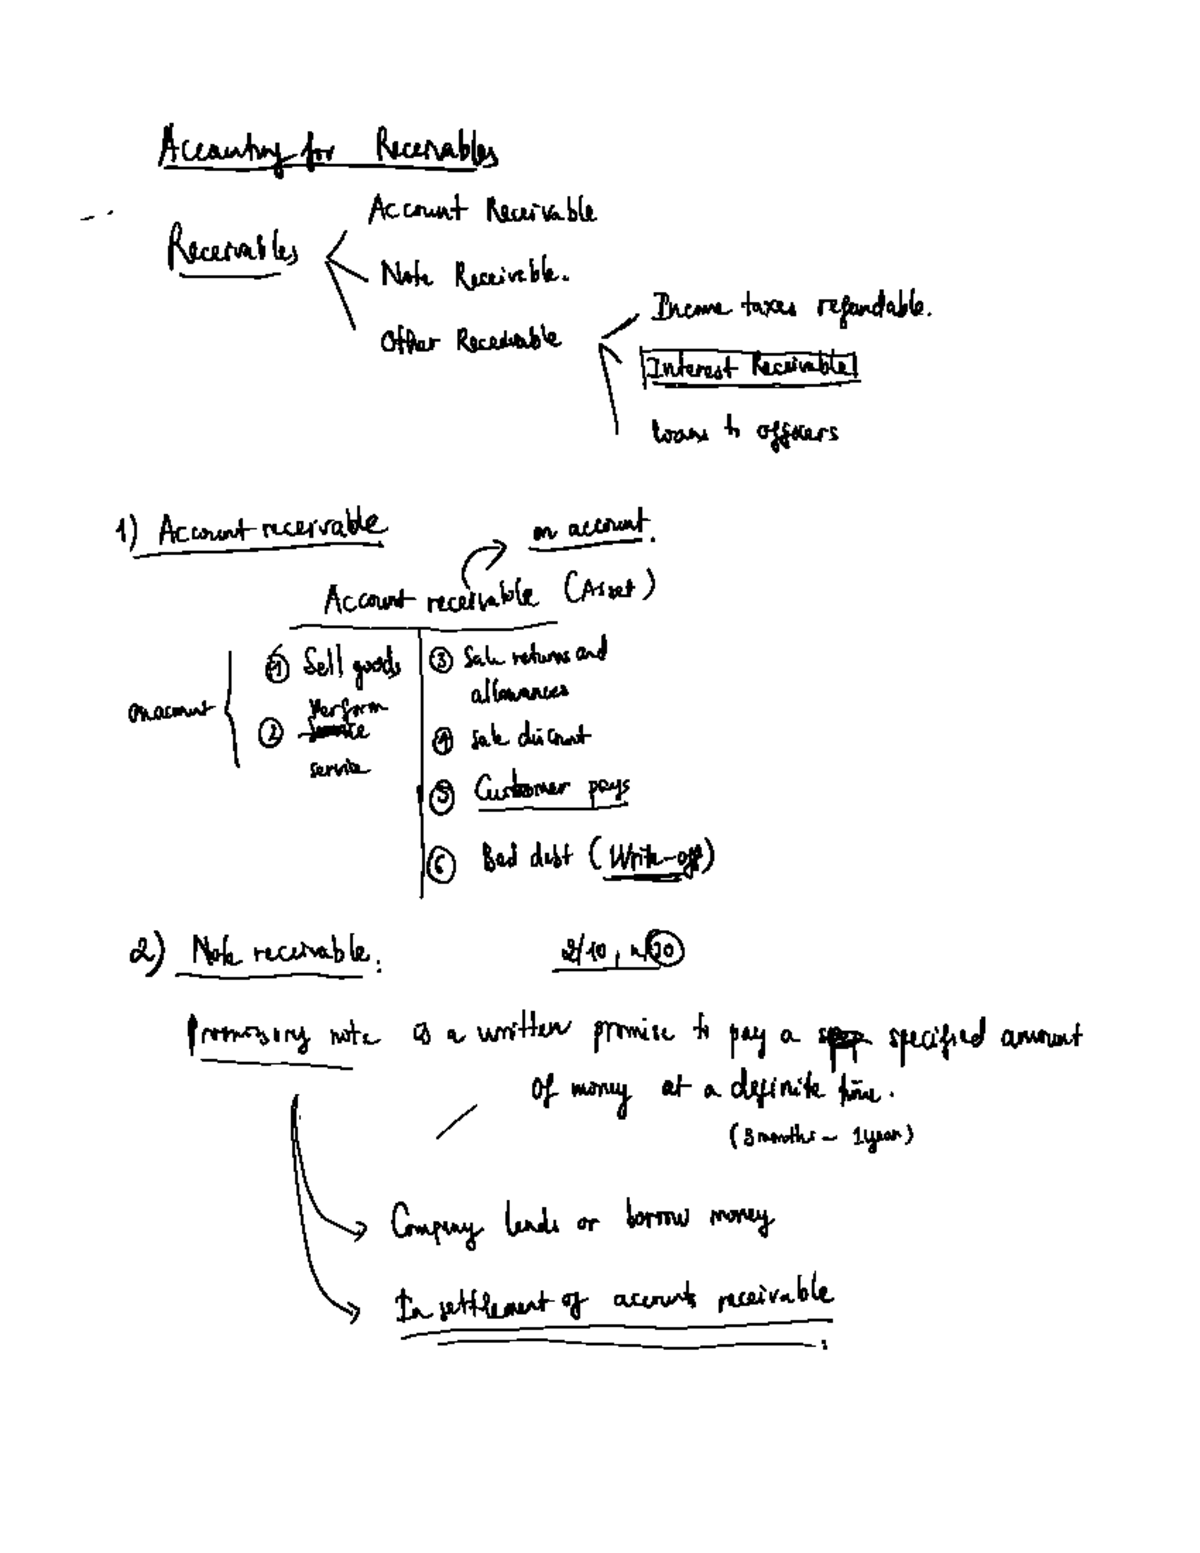 Accounting for Receivables
Account Receivable
Receivables
Note Receivable.
Other Receivable
Income taxes refundable.
Interest Receivable
loans to officers
1) Account receivable
on account.
Account receivable (Asset)
① Sell goods
③ Sale returns and
allowances
on account
Perform
②
service
④ Sale discount
⑤ Customer pays
⑥ Bad debt (Write-off)
2) Note receivable:
2/10, n/30
Promissory note is a written promise to pay a specified amount
of money at a definite time.
(3 months - 1 year)
Company lends or borrow money
In settlement of accounts receivable